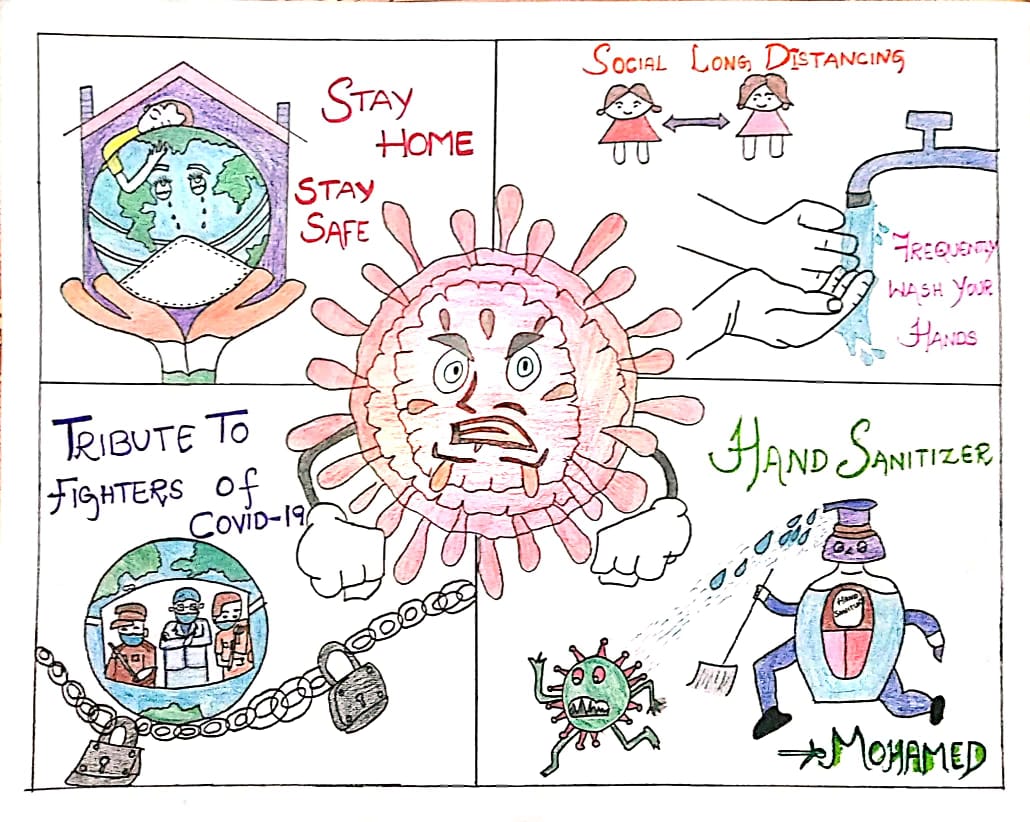 STAY
HOME
STAY
SAFE
SOCIAL LONG DISTANCING
FREQUENTLY
WASH YOUR
HANDS
TRIBUTE TO
FIGHTERS Of
COVID-19
HAND SANITIZER
HAND
MOHAMED